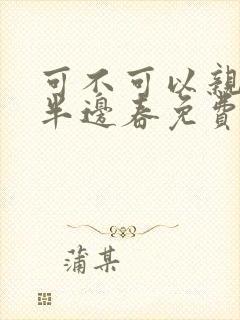 可不可以親
半邊春免費
蒲某